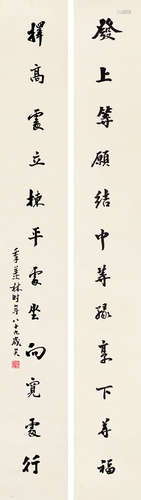 發上等願結中等緣享下等福
擇高處立揀平處坐向寬處行
季羡林時年八十九歲矣